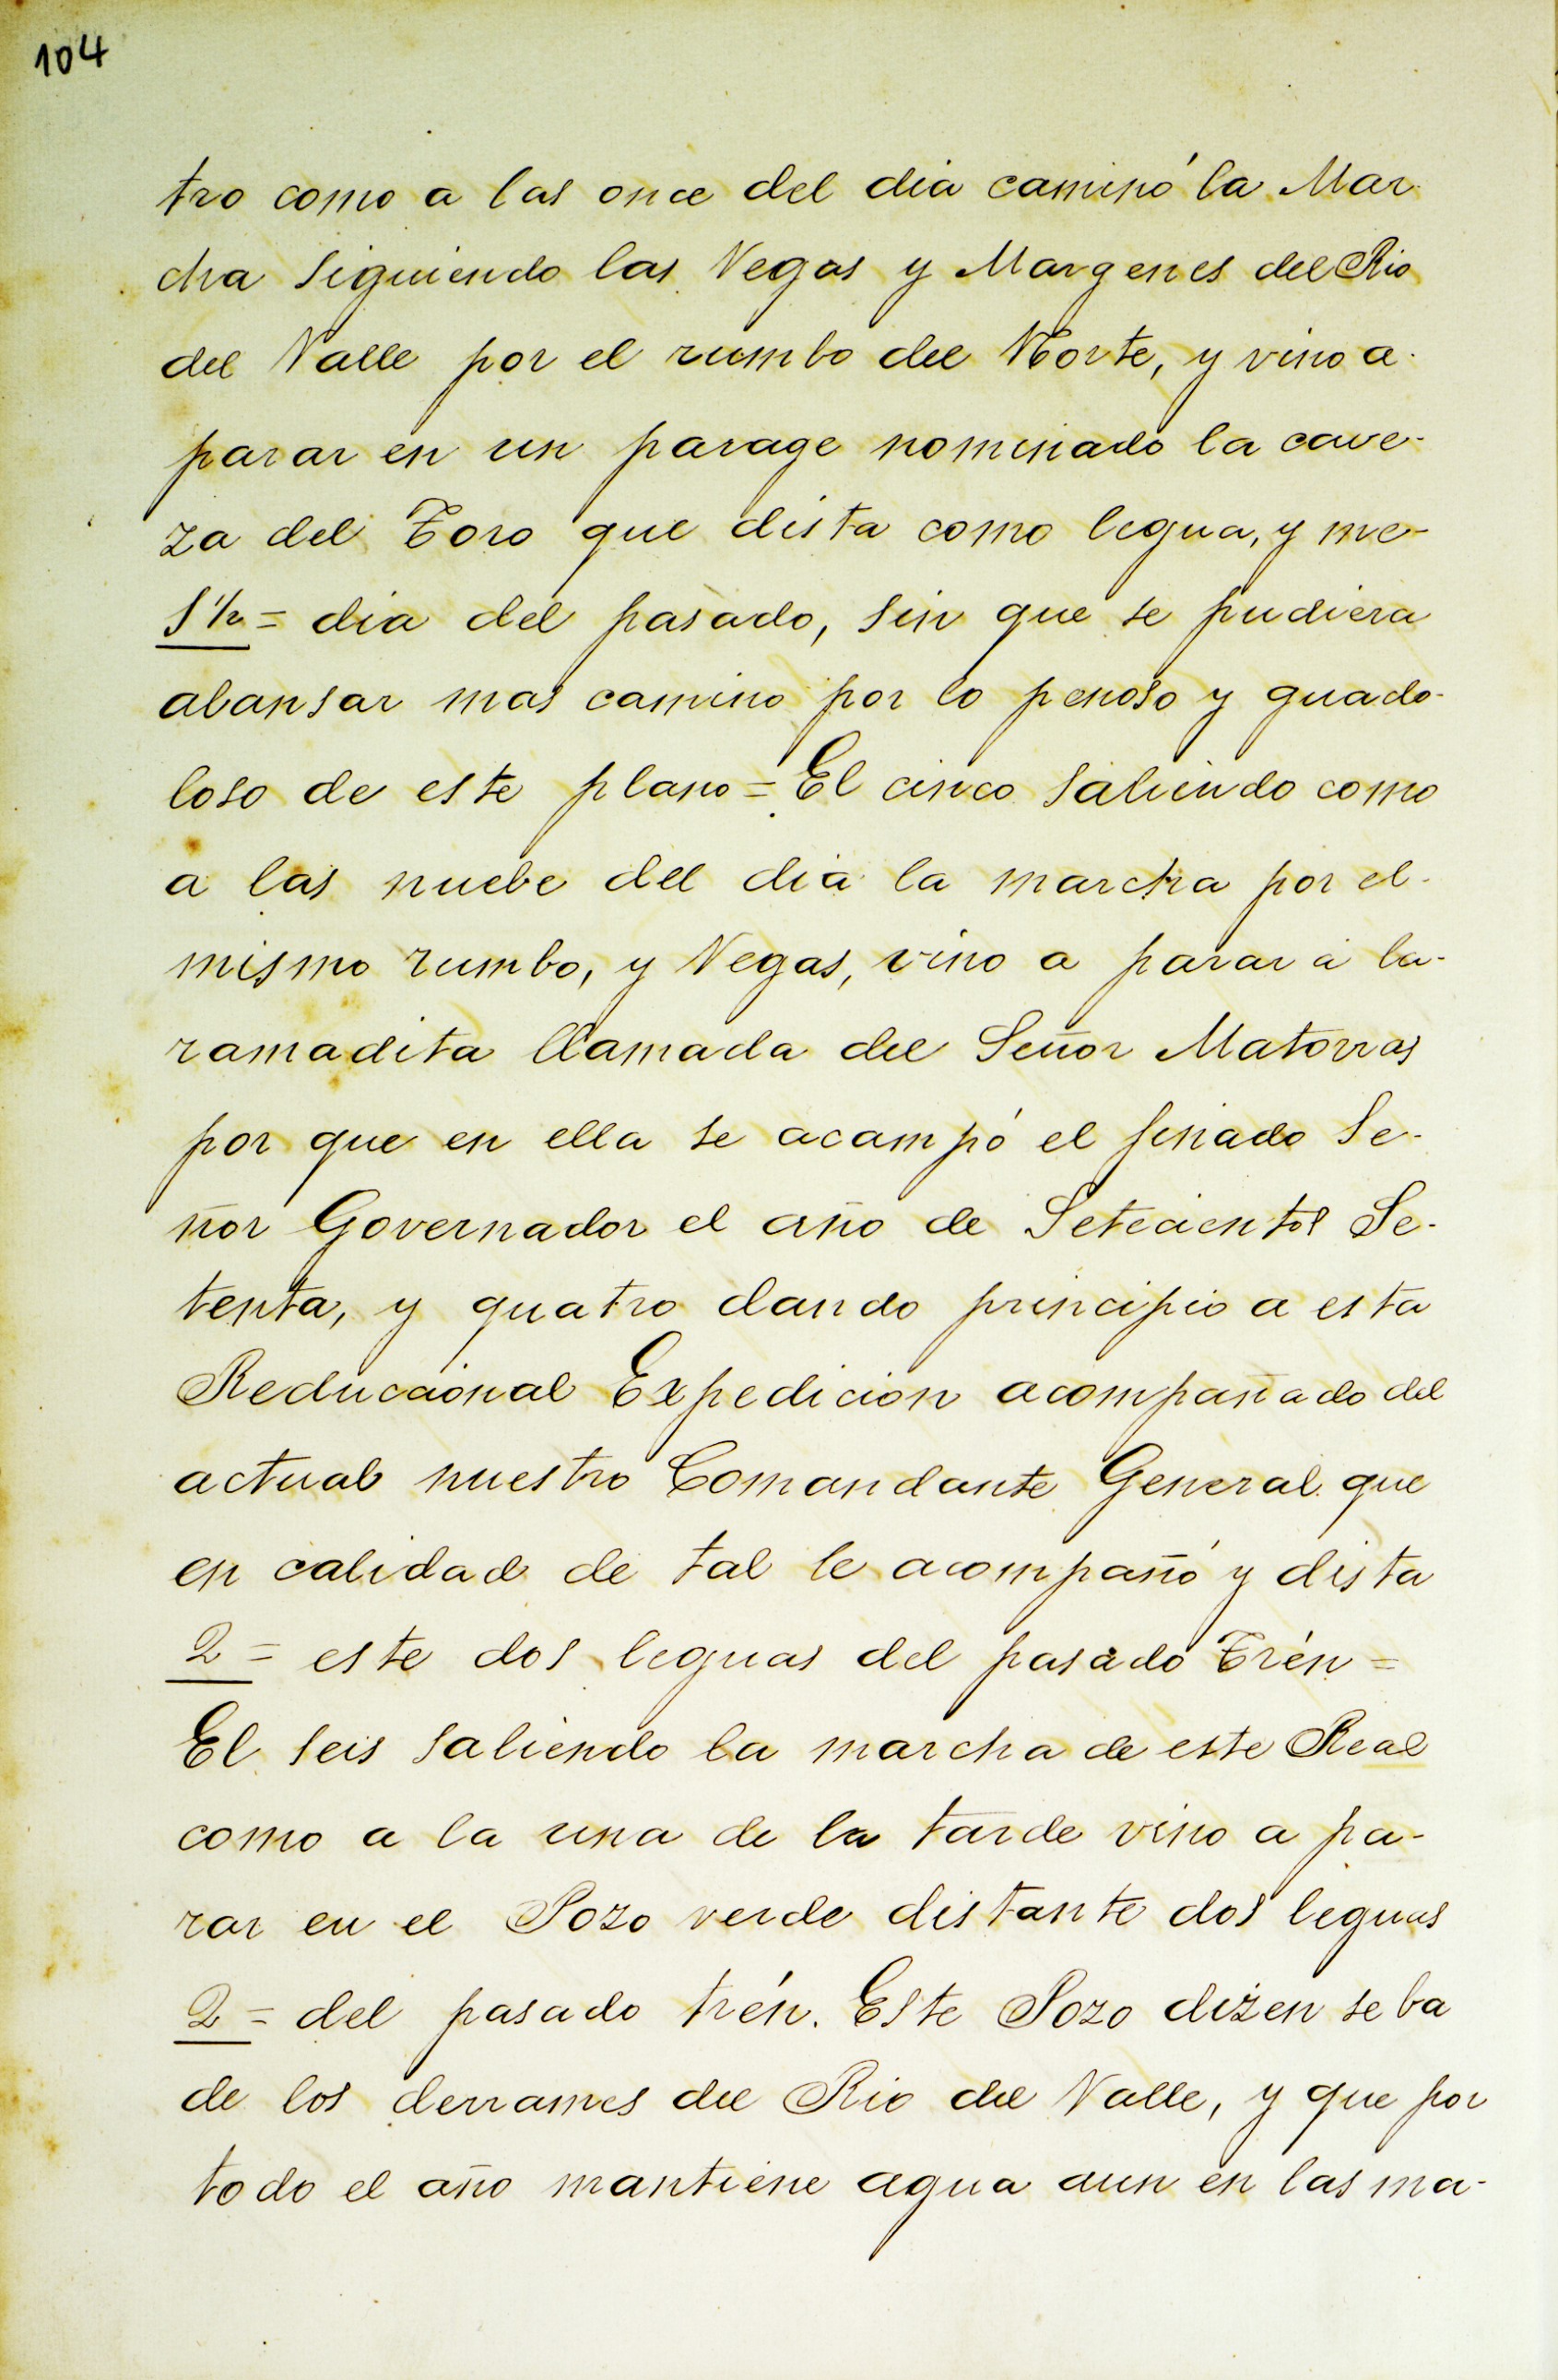 104
tro como a las once del dia caminó la Mar
cha siguiendo las Vegas y Margenes del Rio
del Valle por el rumbo del Norte, y vino a
parar en un parage nominado la cave-
za del Toro que dista como legua, y me-
1½ = dia del pasado, sin que se pudiera
abansar mas camino por lo penoso y guado-
loso de este plano = El cinco saliendo como
a las nuebe del dia la marcha por el
mismo rumbo, y Vegas, vino a parar á la
ramadita llamada del Señor Matorras
por que en ella se acampó el finado Se-
ñor Governador el año de Setecientos Se-
tenta, y quatro dando principio a esta
Reduccional Expedicion acompañado del
actual nuestro Comandante General que
en calidad de tal le acompañó y dista
2 = este dos leguas del pasado Trén =
El seis saliendo la marcha de este Real
como a la una de la tarde vino a pa-
rar en el Pozo verde distante dos leguas
2 = del pasado trén. Este Pozo dizen se ba
de los derrames del Rio del Valle, y que por
todo el año mantiene agua aun en las ma-